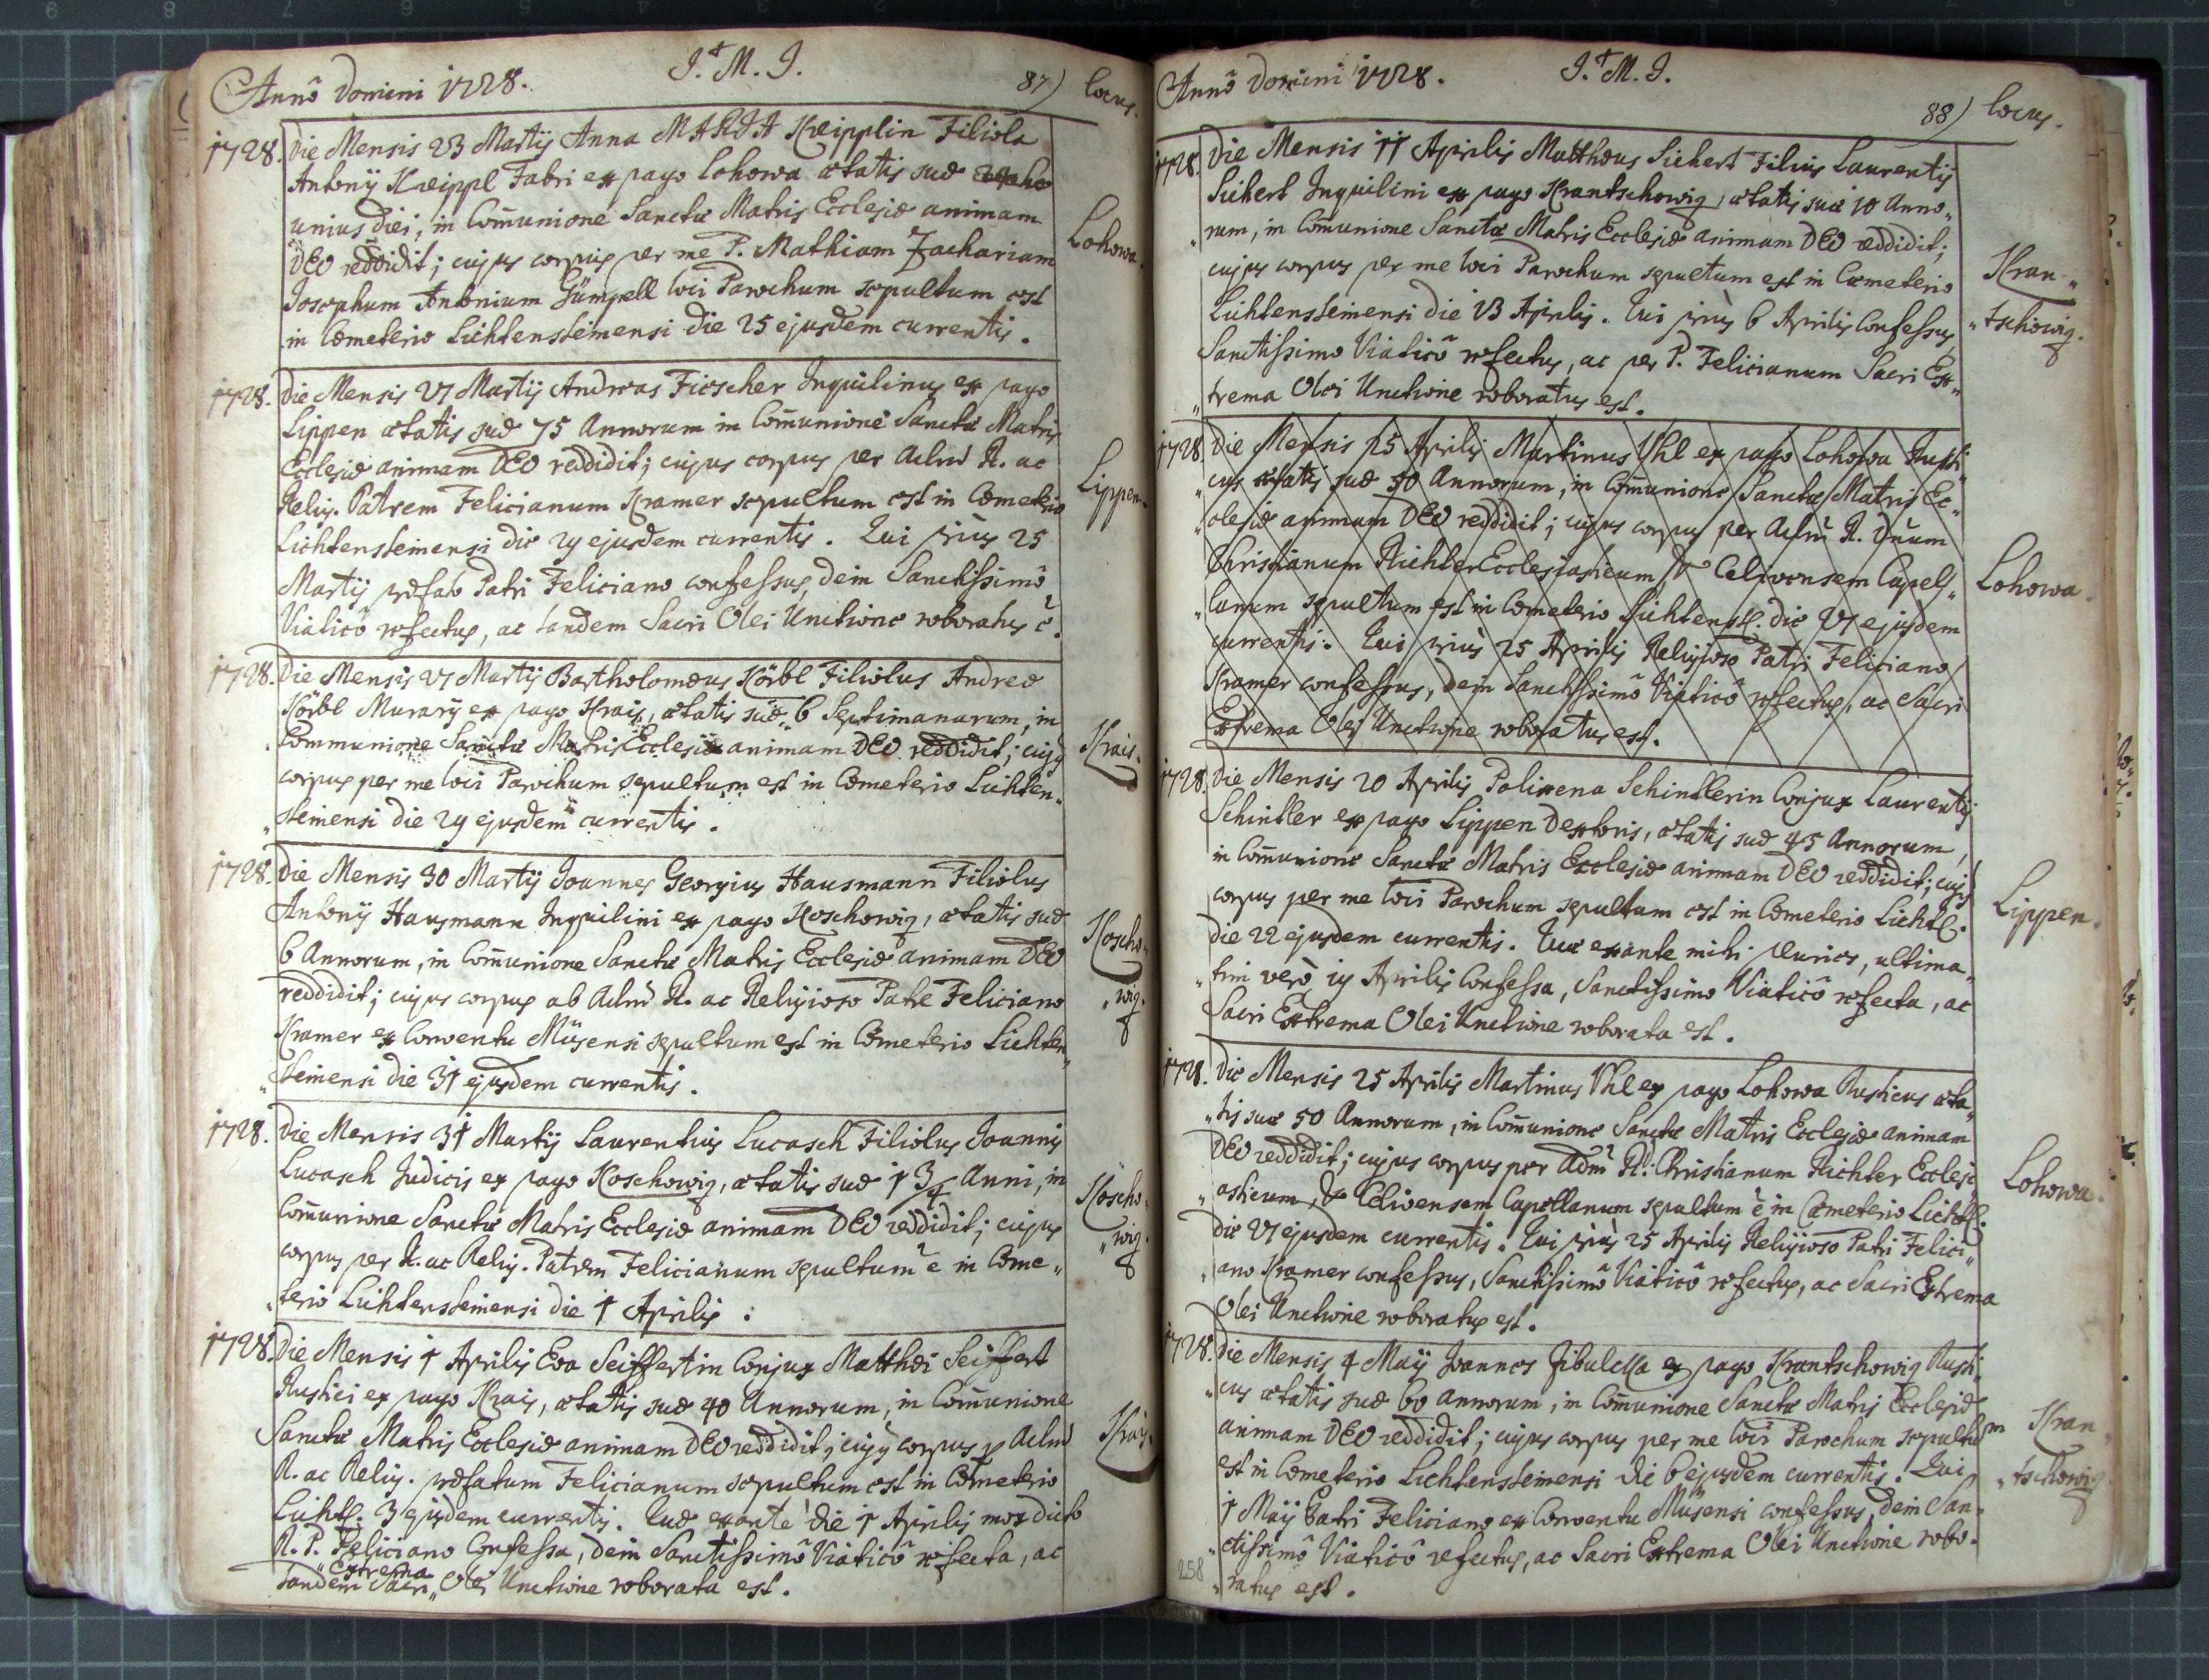 Annô Domini 1728.
J.†M.J.
87)
locus.
1728. Die Mensis 23 Martij Anna MARIA Kreipplin Filiola
Antonij Kreippl Fabri ex pago Lohowa ætatis suæ
unius diei, in Com̄unione Sanctæ Matris Ecclesiæ animam
DEO reddidit; cujus corpus per me P. Mathiam Zachariam
Josephum Antonium Gümpell loci Parochum sepultum est
in Cœmeterio Lichtensteinensi die 25 ejusdem currentis.
Lohowa.
1728. Die Mensis 27 Martij Andreas Fiescher Inquilinus ex pago
Lippen ætatis suæ 75 Annorum in Com̄unione Sanctæ Matris
Ecclesiæ animam DEO reddidit; cujus corpus per Adm̄ R. ac
Relig. Patrem Felicianum Kramer sepultum est in Cœmeterio
Lichtensteinensi die 29 ejusdem currentis. Qui priùs 25
Martij præfato Patri Feliciano confessus, dein Sanctissimô
Viaticô refectus, ac tandem Sacri Olei Unctione roboratus ē.
Lippen.
1728. Die Mensis 27 Martij Bartholomæus Körbl Filiolus Andreæ
Körbl Murarij ex pago Krais, ætatis suæ 6 Septimanarum, in
Communione Sanctæ Matris Ecclesiæ animam DEO reddidit; cujus
corpus per me loci Parochum sepultum est in Cœmeterio Lichten„
„steinensi die 29 ejusdem currentis.
Krais.
1728. Die Mensis 30 Martij Joannes Georgius Hausmann Filiolus
Antonij Hausmann Inquilini ex pago Koschowig, ætatis suæ
6 Annorum, in Com̄unione Sanctæ Matris Ecclesiæ animam DEO
reddidit; cujus corpus ab Adm̄ R. ac Religioso Patre Feliciano
Kramer ex Conventu Misensi sepultum est in Cœmeterio Lichten„
„steinensi die 31 ejusdem currentis.
Koscho„
„wig.
1728. Die Mensis 31 Martij Laurentius Lucasch Filiolus Joannis
Lucasch Judicis ex pago Koschowig, ætatis suæ 1 3/4 Anni, in
Com̄unione Sanctæ Matris Ecclesiæ animam DEO reddidit; cujus
corpus per R. ac Relig. Patrem Felicianum sepultum ē in Cœme„
„terio Lichtensteinensi die 1 Aprilis.
Koscho„
„wig.
1728. Die Mensis 1 Aprilis Eva Seiffertin Conjux Matthæi Seiffert
Rustici ex pago Krais, ætatis suæ 40 Annorum, in Com̄unione
Sanctæ Matris Ecclesiæ animam DEO reddidit; cujus corpus p Adm̄
R. ac Relig. præfatum Felicianum sepultum est in Cœmeterio
Lichtst. 3 ejusdem currentis. Quæ exante die 1 Aprilis mox dicto
R. P. Feliciano Confessa, dein Sanctissimô Viaticô refecta, ac
tandem Sacri Extrema Olei Unctione roborata est.
Krais.
Annô Domini 1728.
J.†M.J.
88)
locus.
1728. Die Mensis 11 Aprilis Matthæus Siehert Filius Laurentij
Siehert Inquilini ex pago Krantschowig, ætatis suæ 10 Anno„
„rum, in Com̄unione Sanctæ Matris Ecclesiæ animam DEO reddidit;
cujus corpus per me loci Parochum sepultum est in Cœmeterio
Lichtensteinensi die 13 Aprilis. Qui priùs 6 Aprilis Confessus
Sanctissimo Viaticô refectus, ac per P. Felicianum Sacri Ex„
„trema Olei Unctione roboratus est.
Kran„
„tschowig.
1728. Die Mensis 25 Aprilis Martinus Uhl ex pago Lohowa Rusti„
„cus ætatis suæ 50 Annorum, in Com̄unione Sanctæ Matris Ec„
„clesiæ animam DEO reddidit; cujus corpus per Adm̄ R. Dnum
Christianum Richter Ecclesiasticum & Celivensem Capell„
„lanum sepultum est in Cœmeterio Lichtenst. die 27 ejusdem
currentis. Qui priùs 25 Aprilis Religioso Patri Feliciano
Kramer confessus, dein Sanctissimô Viaticô refectus, ac Sacri
Extrema Olei Unctione roboratus est.
Lohowa.
1728. Die Mensis 20 Aprilis Polixena Schindlerin Conjux Laurentij
Schindler ex pago Lippen Textoris, ætatis suæ 45 Annorum,
in Com̄unione Sanctæ Matris Ecclesiæ animam DEO reddidit; cujus
corpus per me loci Parochum sepultum est in Cœmeterio Lichtst.
die 22 ejusdem currentis. Quæ exante mihi pluries, ultima„
„tim verò 19 Aprilis Confessa, Sanctissimo Viaticô refecta, ac
Sacri Extrema Olei Unctione roborata est.
Lippen.
1728. Die Mensis 25 Aprilis Martinus Uhl ex pago Lohowa Rusticus æta„
„tis suæ 50 Annorum, in Com̄unione Sanctæ Matris Ecclesiæ animam
DEO reddidit; cujus corpus per Adm̄ R. Christianum Richter Ecclesi„
„asticum, & Celivensem Capellanum sepultum ē in Cœmeterio Lichtst.
die 27 ejusdem currentis. Qui priùs 25 Aprilis Religioso Patri Felici„
„ano Kramer confessus, Sanctissimô Viaticô refectus, ac Sacri Extrema
Olei Unctione roboratus est.
Lohowa.
1728. Die Mensis 4 Maij Joannes Zibulcka ex pago Krantschowig Rusti„
„cus ætatis suæ 60 annorum, in Com̄unione Sanctæ Matris Ecclesiæ
animam DEO reddidit; cujus corpus per me loci Parochum sepultum
est in Cœmeterio Lichtensteinensi die 6 ejusdem currentis. Qui
1 Maij Patri Feliciano ex Conventu Misensi confessus, dein San„
„ctissimô Viaticô refectus, ac Sacri Extrema Olei Unctione robo„
„ratus est.
Kran„
„tschowig
258